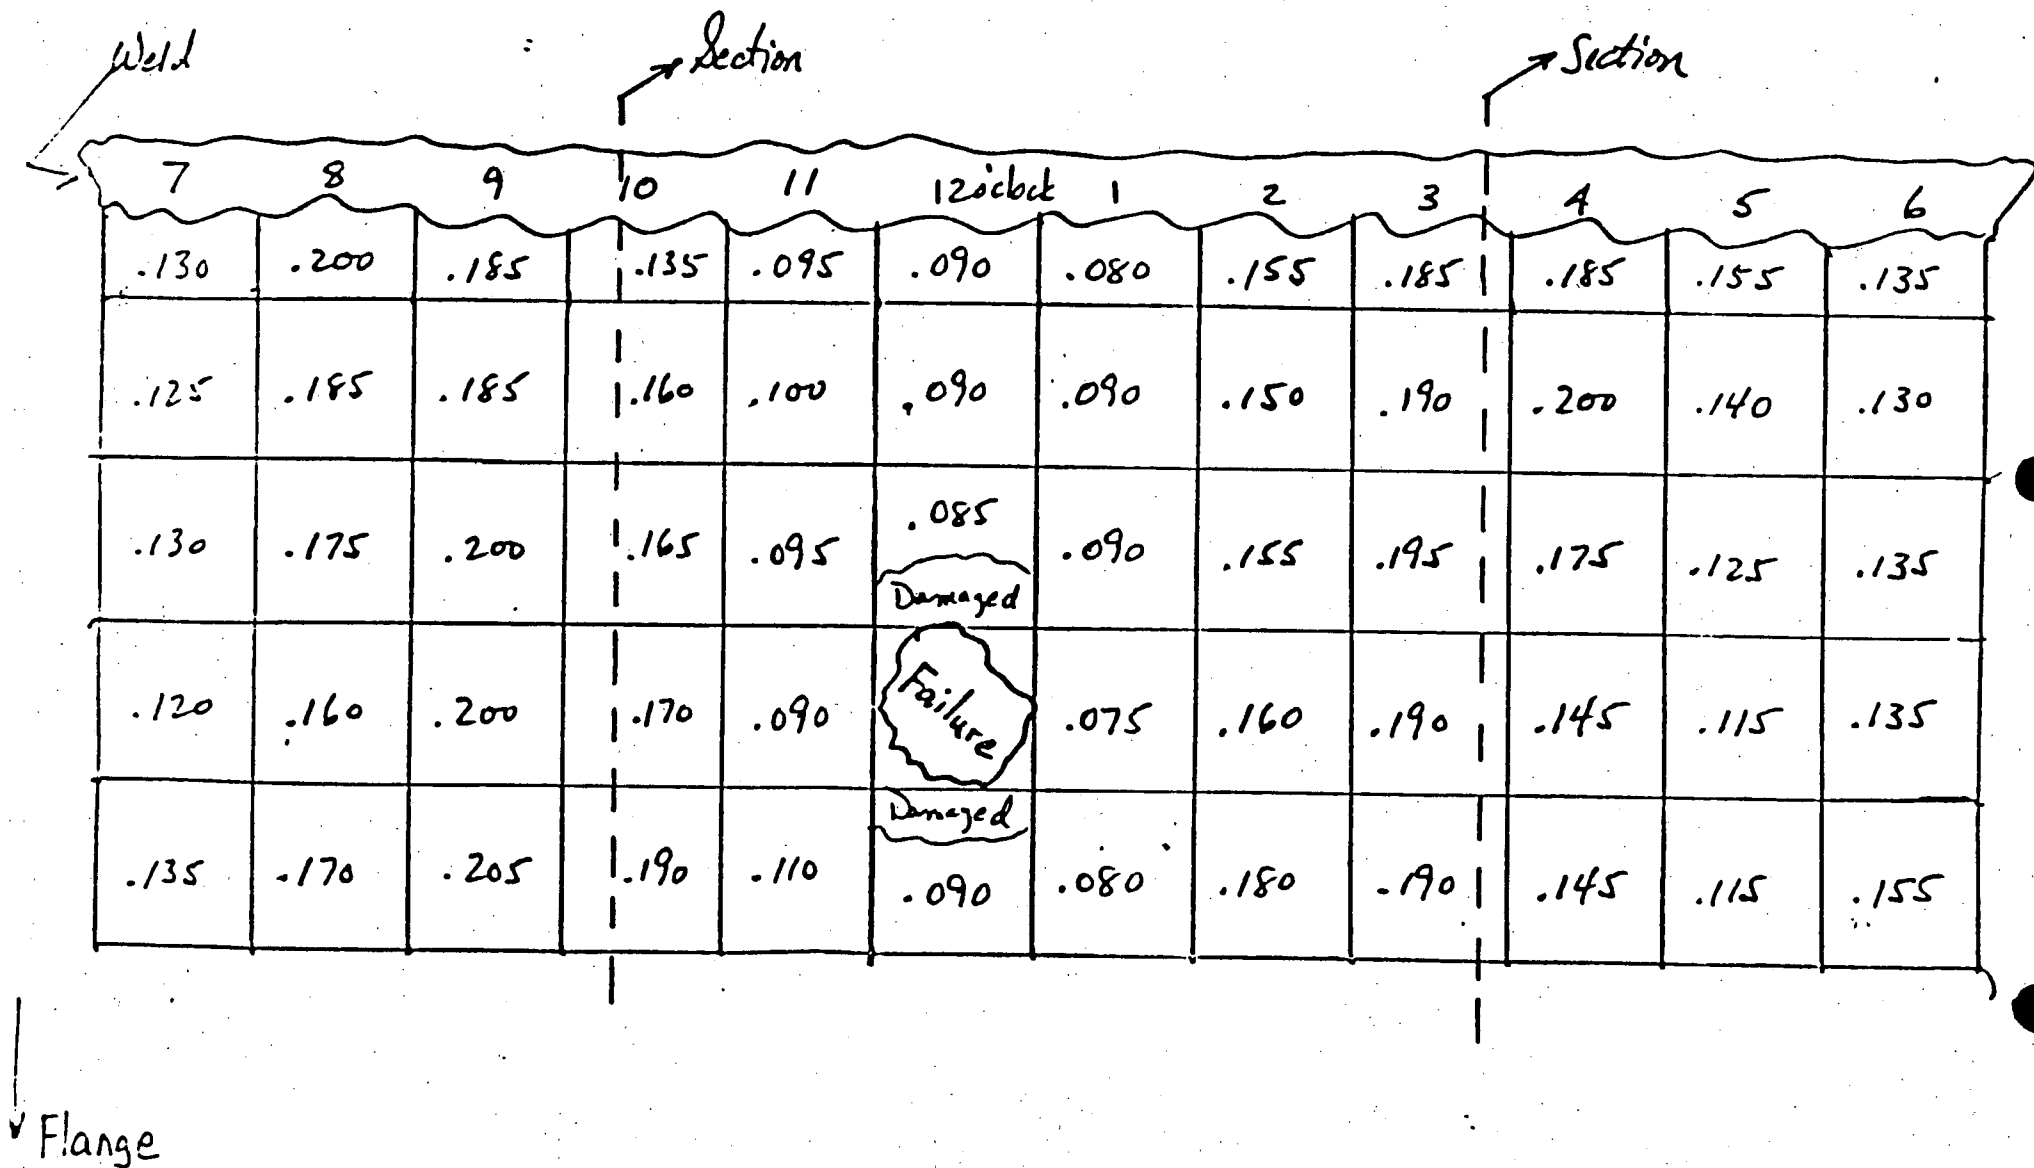 Weld
Section
Section
7 8 9 10 11 12 o'clock 1 2 3 4 5 6
.130 .200 .185 .135 .095 .090 .080 .155 .185 .185 .155 .135
.125 .185 .185 .160 .100 .090 .090 .150 .190 .200 .140 .130
.130 .175 .200 .165 .095 .085 .090 .155 .195 .175 .125 .135
Damaged
.120 .160 .200 .170 .090 Failure .075 .160 .190 .145 .115 .135
Damaged
.135 .170 .205 .190 .110 .090 .080 .180 .190 .145 .115 .155
Flange